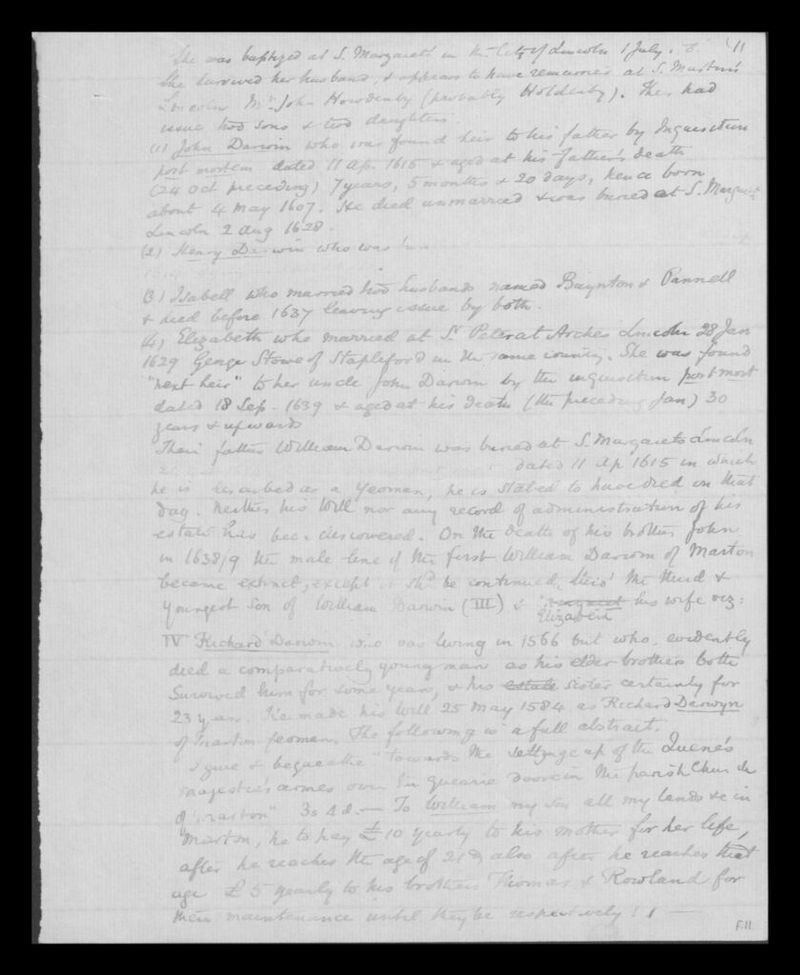 She was baptized at S. Margarets in the City of Lincoln 1 July. 11
She survived her husband, & appears to have remarried at S. Martin's
Lincoln Mr. John Howdenby (probably Holdenby). They had
issue two sons & two daughters.
(1) John Darwin who was found heir to his father by Inquisition
post mortem dated 11 Ap. 1615 & aged at his father's death
(24 Oct preceding) 7 years, 5 months & 20 days, hence born
about 4 May 1607. He died unmarried & was buried at S. Margarets
Lincoln 2 Aug 1628.
(2) Henry Darwin who was
(3) Isabell who married two husbands named Boynton & Pannell
& died before 1637 leaving issue by both.
(4) Elizabeth who married at St Peter at Arches Lincoln 28 Jan
1629 George Stowe of Stapleford in the same county. She was found
"next heir" to her uncle John Darwin by the inquisition post mort
dated 18 Sep. 1639 & aged at his death (the preceding Jan) 30
years & upwards
Their father William Darwin was buried at S. Margarets Lincoln
dated 11 Ap 1615 in which
he is described as a Yeoman, he is stated to have died on that
day. Neither his Will nor any record of administration of his
estate has been discovered. On the death of his brother John
in 1638/9 the male line of the first William Darwin of Marton
became extinct, except it shd. be continued thro' the third &
youngest son of William Darwin (III) & his wife viz:
Elizabeth
IV Richard Darwin who was living in 1566 but who evidently
died a comparatively young man as his elder brothers both
survived him for some years, & his estate sister certainly for
23 years. He made his Will 25 May 1584 as Richard Darwyn
of Marton yeoman. The following is a full abstract.
I give & bequeathe "towards the settynge up of the Quene's
majesties armes over the quearie doore in the parish Churche
of Marton" 3s 4d. — To William my son all my lands &c in
Marton, he to pay £10 yearly to his mother for her life,
after he reaches the age of 21 & also after he reaches that
age £5 yearly to his brothers Thomas & Rowland for
their maintenance until they be respectively 21 —
F.11